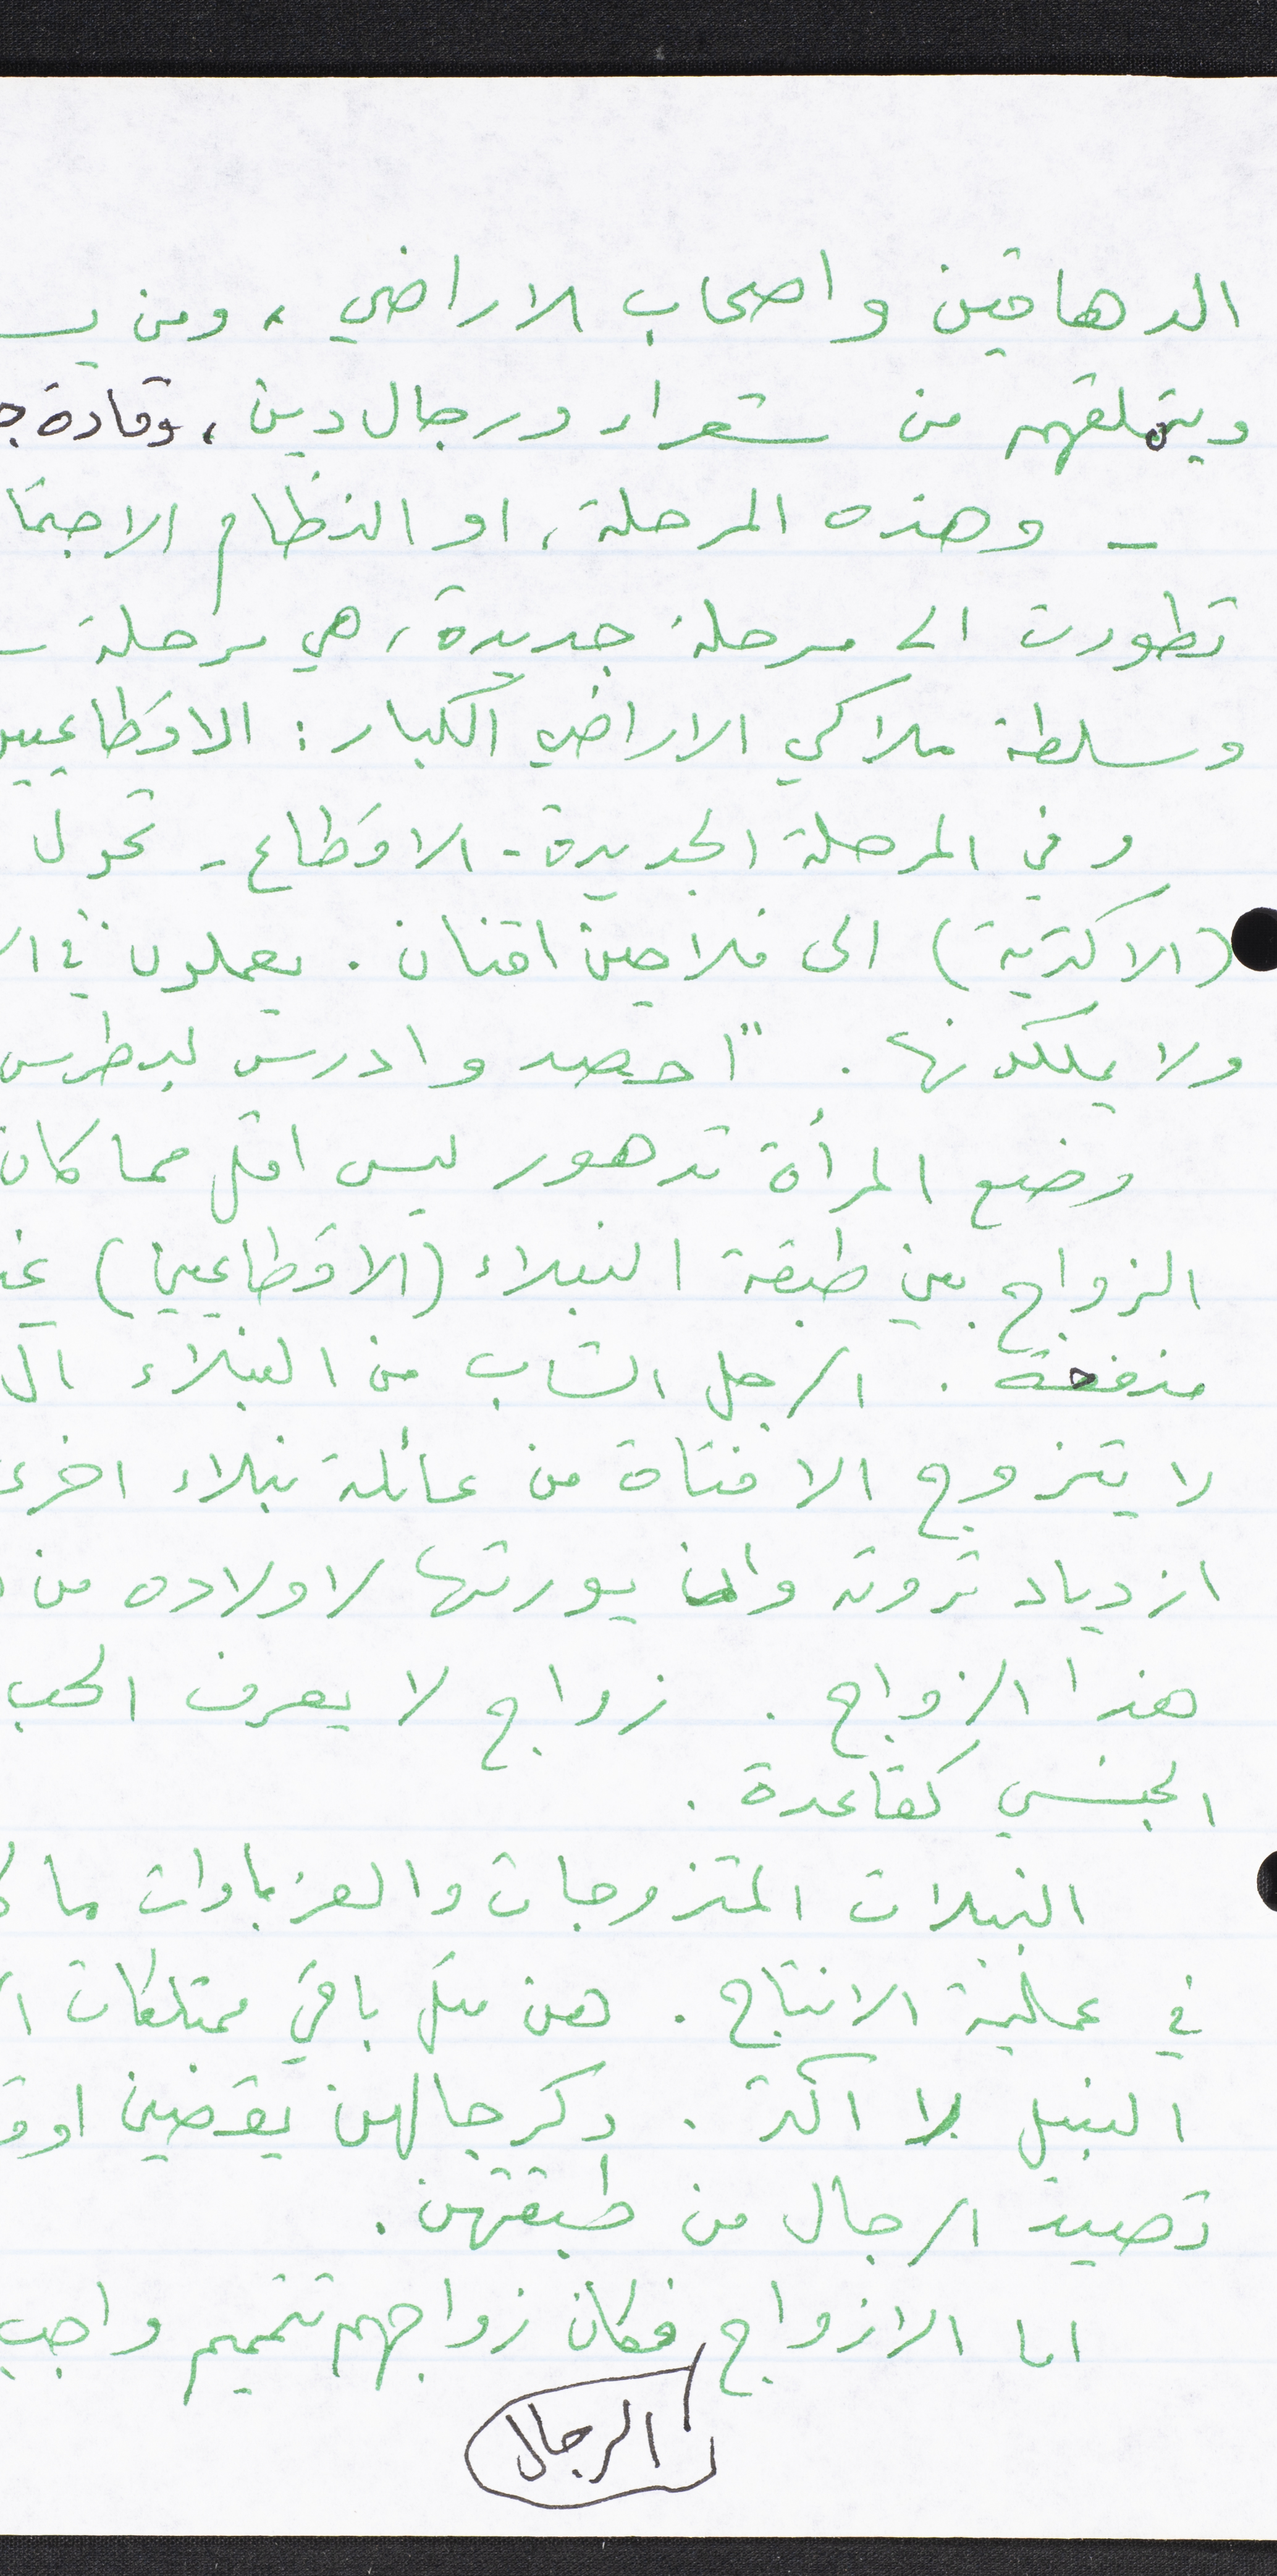 الدهاقين واصحاب الاراضي، ومن يسـ
ويتملقهم من شعراء ورجال دين، وقادة جـ
ـ وهذه المرحلة، او النظام الاجتما
تطورت الى مرحلة جديدة، هي مرحلة
وسلطة ملاكي الاراضي الكبار : الاقطاعيين
وفي المرحلة الجديدة - الاقطاع - تحول
(الاكثرية) الى فلاحين اقنان . يعملون في الا
ولا يملكونها . "احصد وادرس لبطرس
وضع المرأة تدهور ليس اقل مما كان
الزواج بين طبقة النبلاء (الاقطاعيين)
منفعة . الرجل الشاب من النبلاء
لا يتزوج الا فتاة من عائلة نبلاء اخرى
ازدياد ثروته وان يورثها لاولاده من
هذا الزواج . زواج لا يعرف الحب
الجنسي كقاعدة .
النبيلات المتزوجات والعزباوات ما
في عملية الانتاج . هن مثل باقي ممتلكات
النبيل لا اكثر . وكرجالهن يقضين اوقـ
تصيد الرجال من طبقتهن .
اما الازواج فكان زواجهم تتميم واجب
الرجال